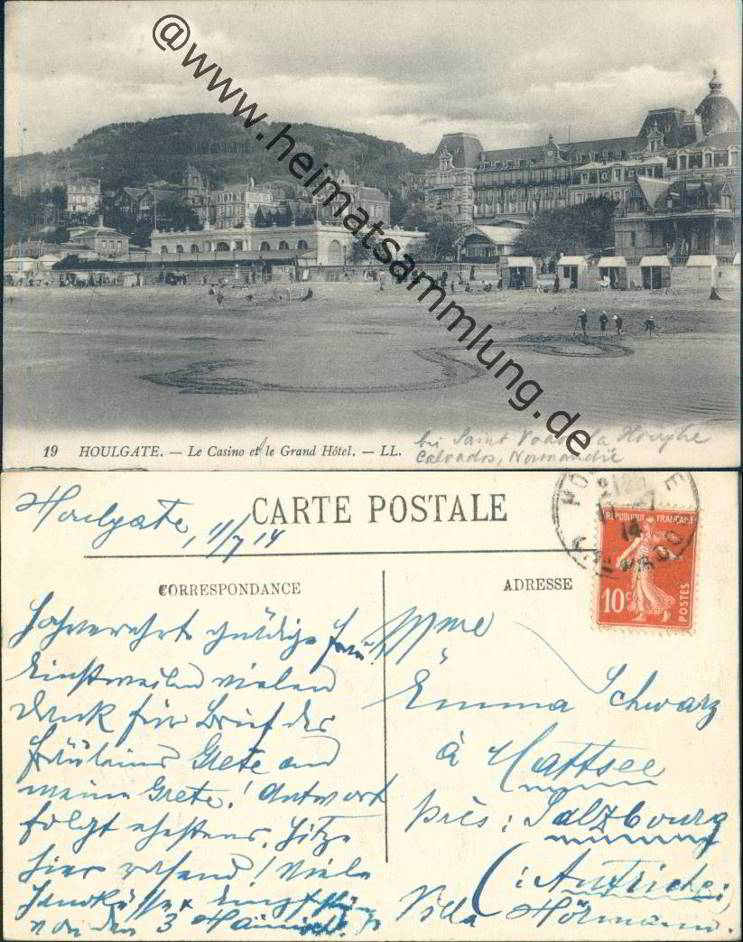 @www.heimatsammlung.de
19 HOULGATE. — Le Casino et le Grand Hôtel. — LL.
bei Saint Vaast la Hougue
Calvados, Normandie
Houlgate, 11/7 14
CARTE POSTALE
CORRESPONDANCE
ADRESSE
REPUBLIQUE FRANÇAISE
10c POSTES
CALVADOS
Hochverehrte gnädige Frau
Einstweilen vielen
Dank für Brief des
Fräuleins Grete und
meine Grete! Antwort
folgt ehestens. Hitze
hier rasend! Viele
Handküsse
von den 3
Mme
Emma Schwarz
à Mattsee
près: Salzbourg
(: Autriche :)
Villa Hörmann.